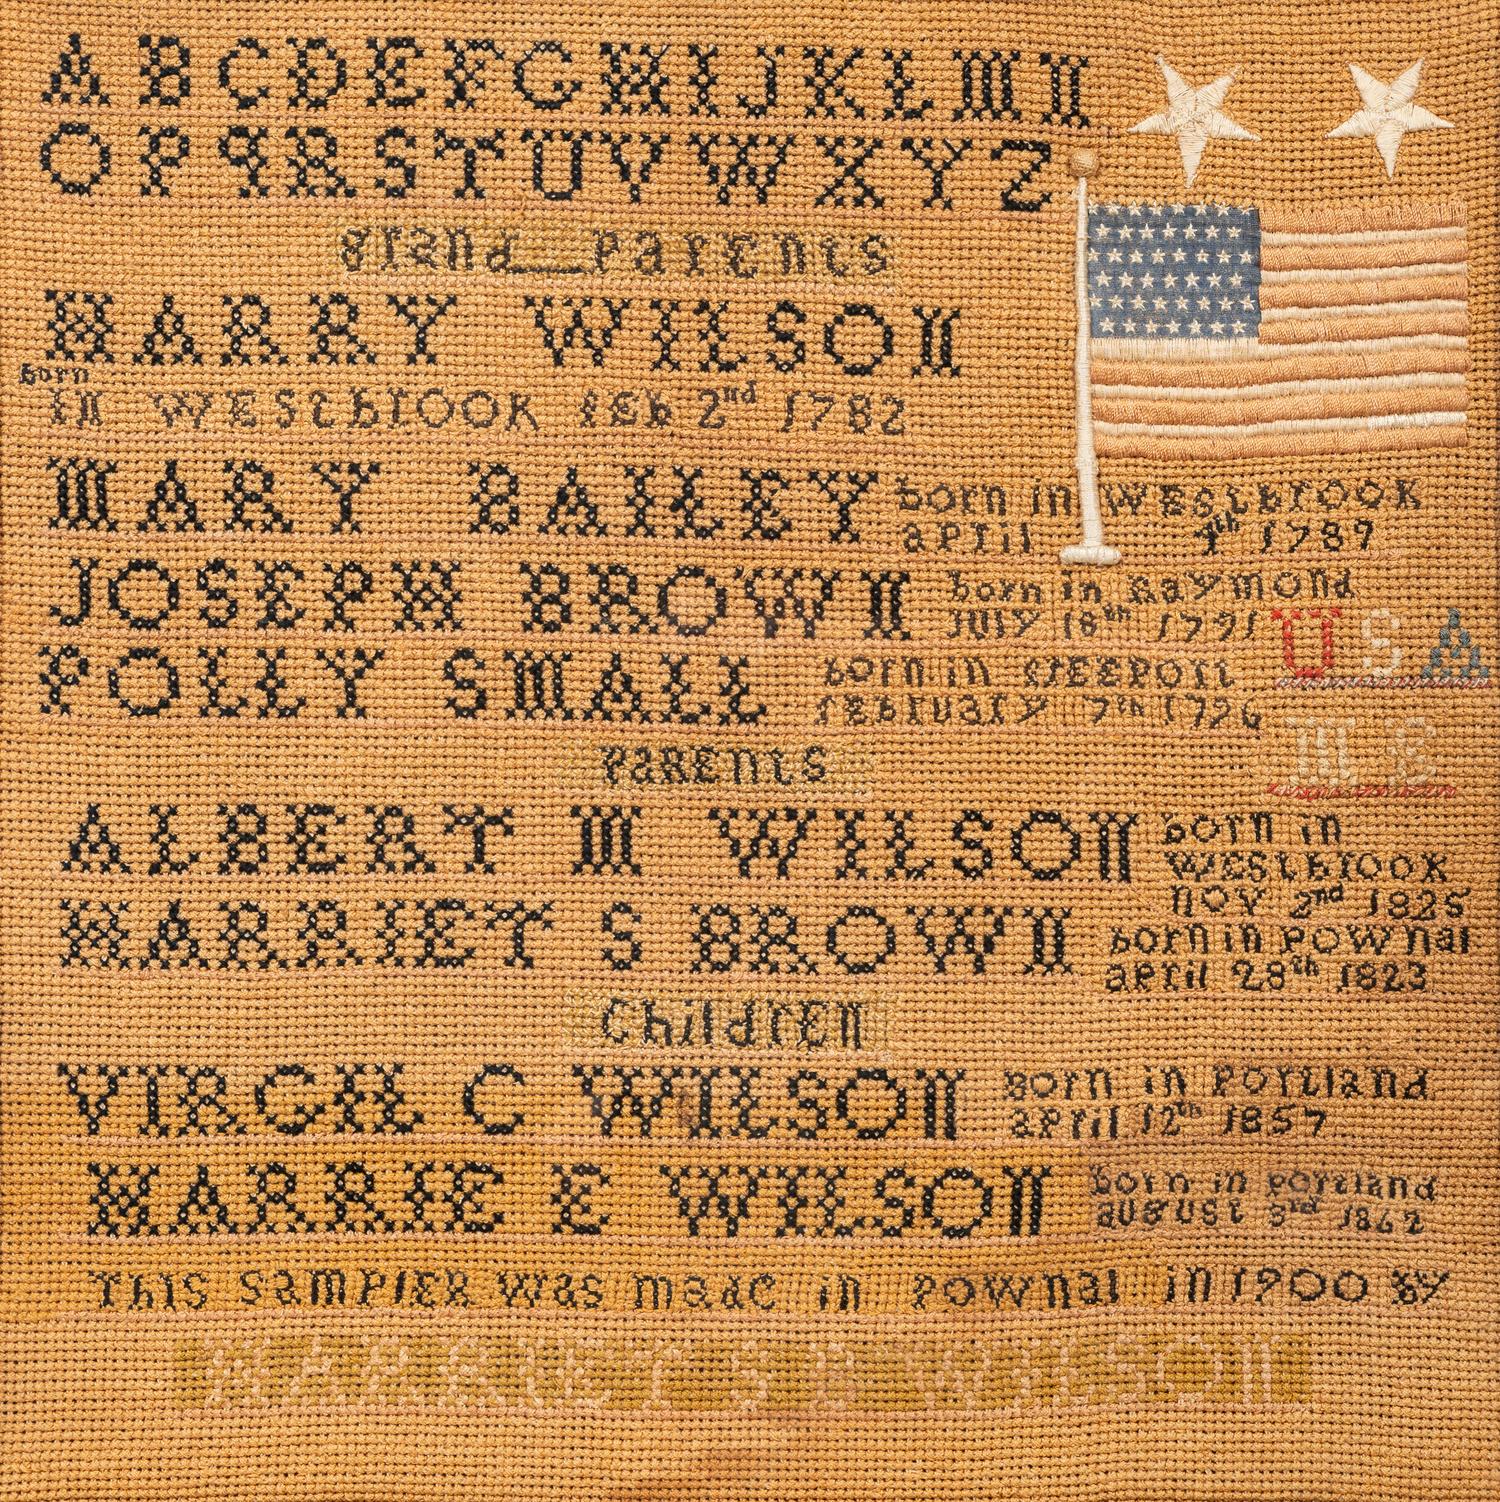 ABCDEFGHIJKLMN
OPQRSTUVWXYZ
Grand Parents
HARRY WILSON
born
in WEStbrOOK fEb 2nd 1782
MARY BAILEY born in WEStbrOOK
april 4th 1789
JOSEPH BROWN born in RayMOnd
JULY 18th 1791
USA
POLLY SMALL born in frEEPOrt
fEbruary 7th 1796
ME
PaREnts
ALBERT M WILSON born in
WEStbrOOK
nOV 2nd 1825
HARRIET S BROWN born in POWnal
april 28th 1823
ChildrEn
VIRGIL C WILSON born in POrtland
april 12th 1857
HARRIE E WILSON born in POrtland
auguSt 3rd 1862
This SaMPlER Was made in POWnal in 1900 by
HARRIET S B WILSON